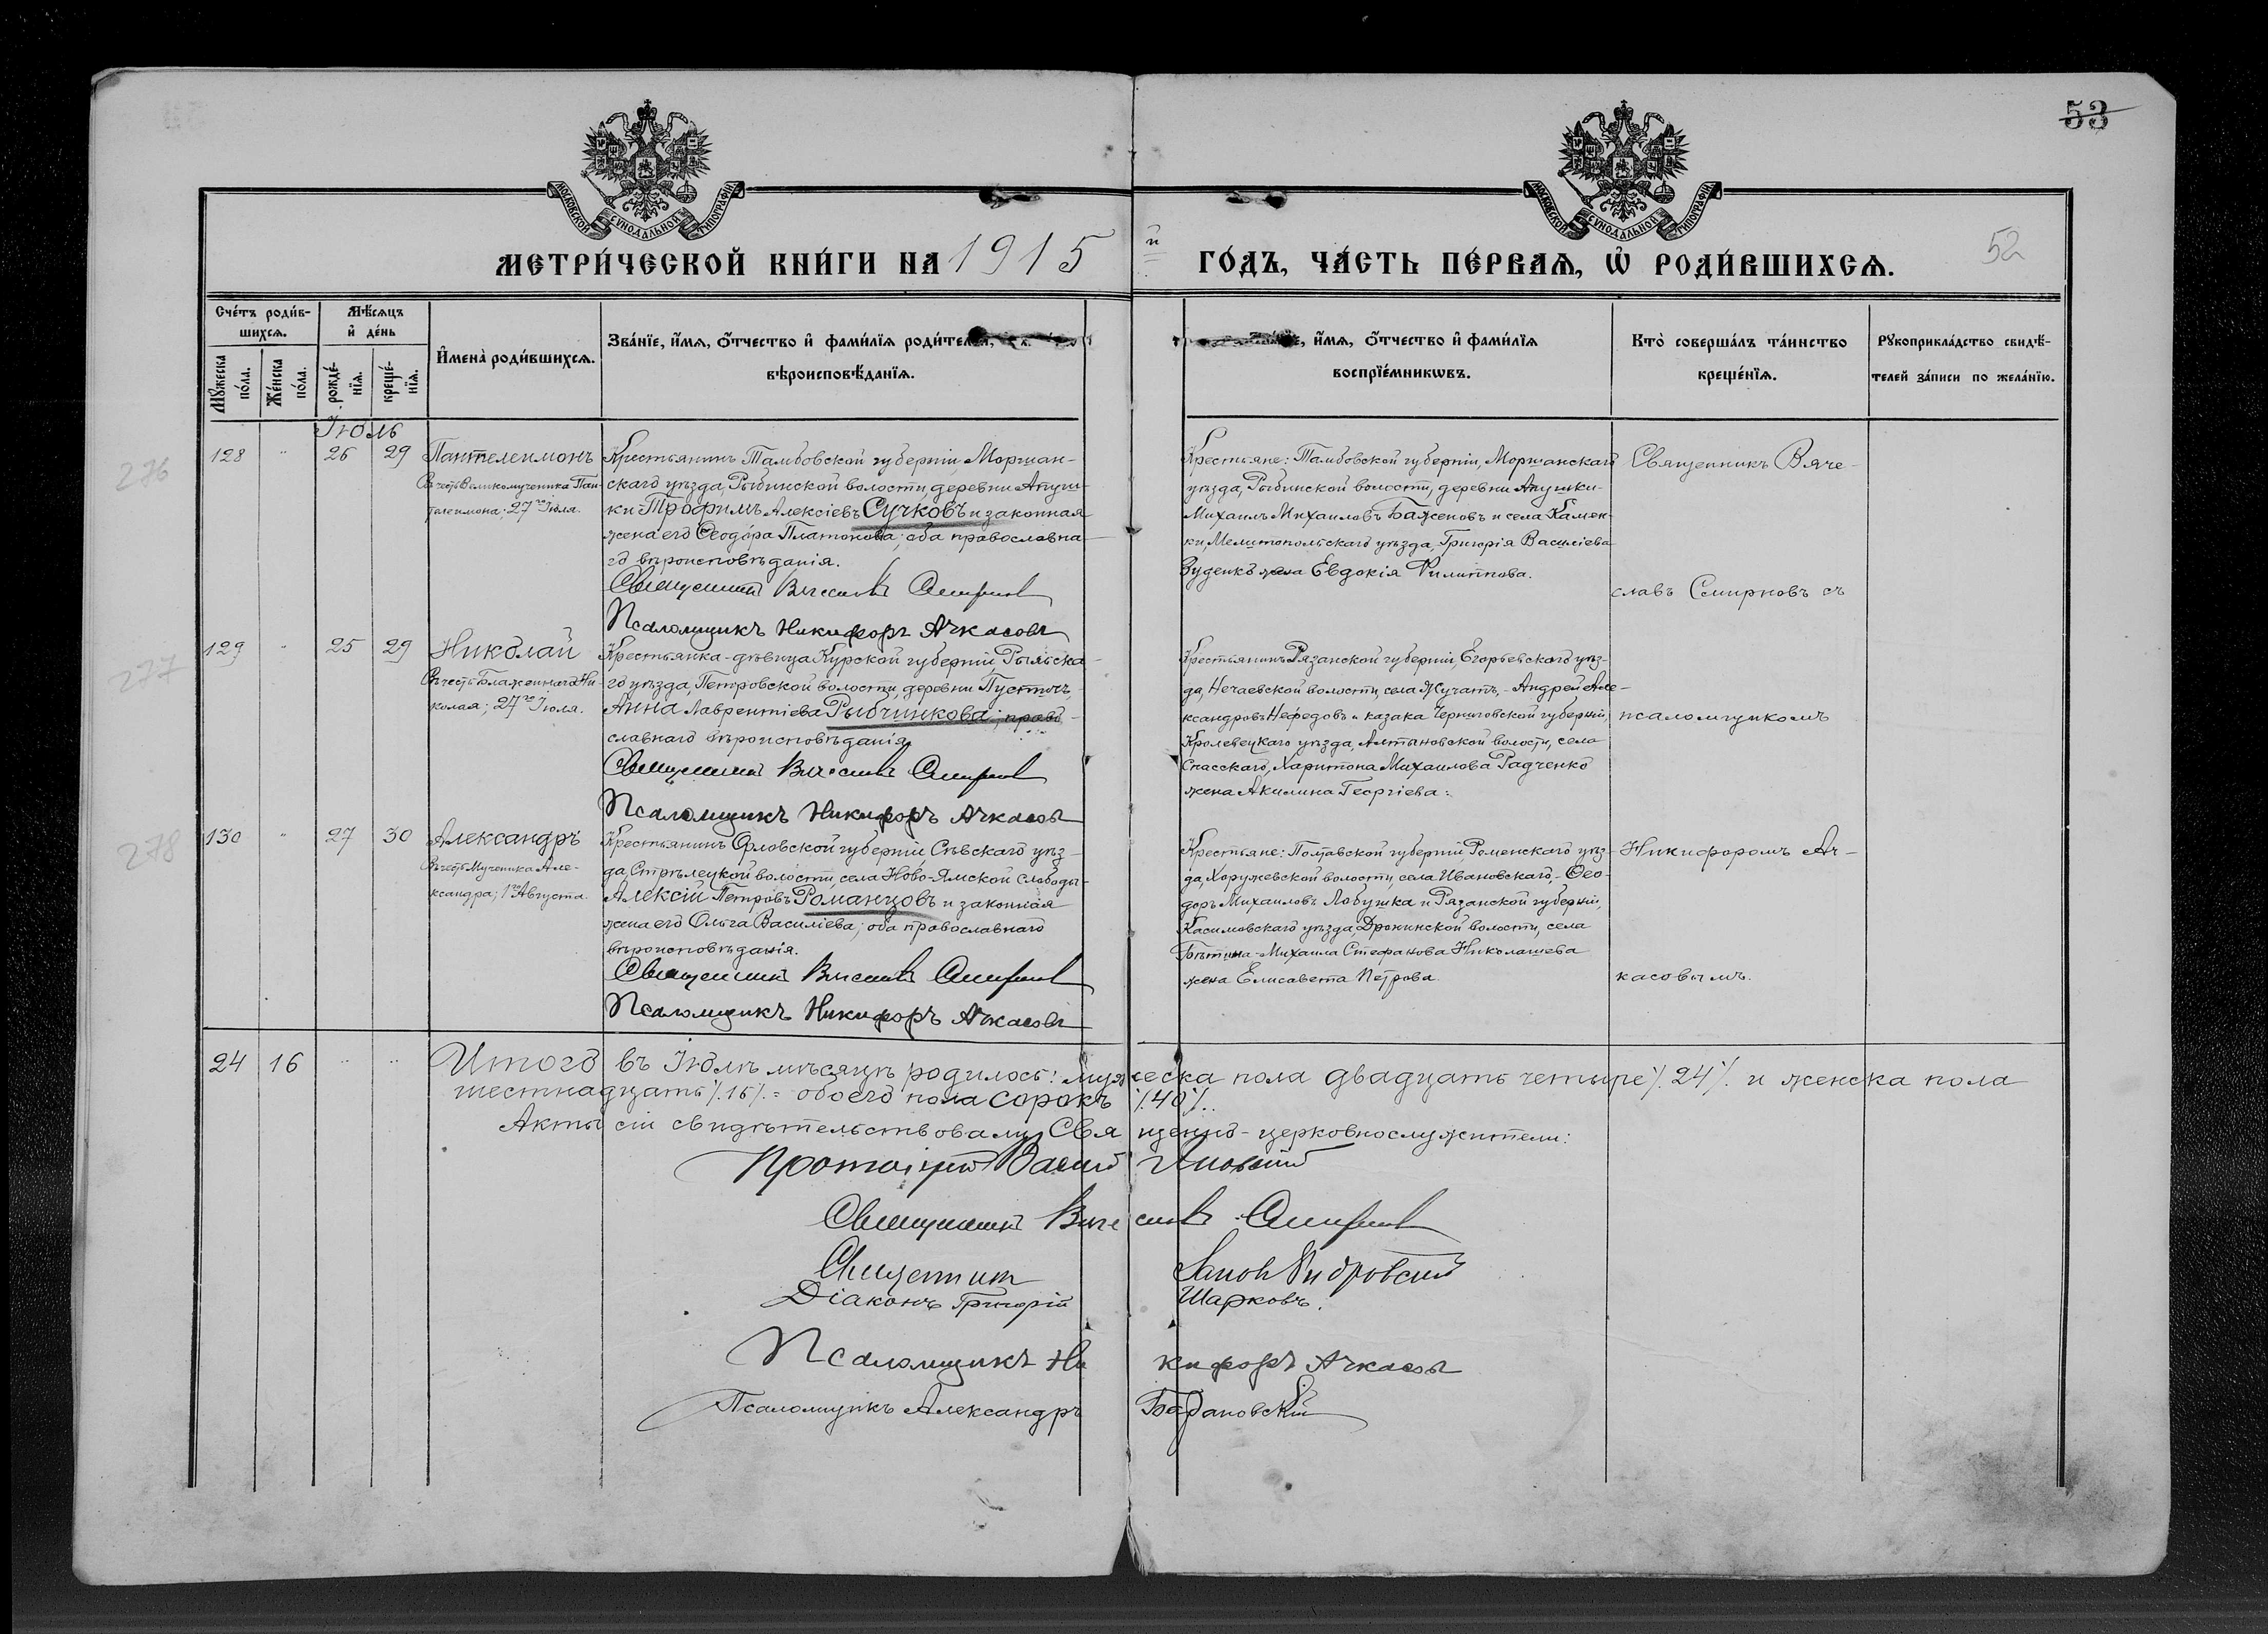 53
МОСКОВСКОЙ СѴНОДАЛЬНОЙ ТИПОГРАФІИ
МОСКОВСКОЙ СѴНОДАЛЬНОЙ ТИПОГРАФІИ
МЕТРИ́ЧЕСКОЙ КНИ́ГИ НА 1915 й ГО́ДЪ, ЧА́СТЬ ПЕ́РВАЯ, Ѽ РОДИ́ВШИХСЯ.
52
Сче́тъ роди́в-
шихся.
Мѣ́сяцъ
и де́нь
Мꙋ́жеска по́ла.
Же́нска по́ла.
рожде́-
нїя.
креще́-
нїя.
Имена̀ роди́вшихся.
Зва́нїе, и́мя, о́тчество и фами́лїя роди́телей,
вѣроисповѣ́данїя.
и́мя, о́тчество и фами́лїя
воспрїе́мникѡвъ.
Кто̀ соверша́лъ та́инство
креще́нїя.
Рꙋкоприкла́дство свидѣ́-
телей за́писи по жела́нїю.
Іюль
276
128 " 26 29 Пантелеимонъ
Въ честь Великомученика Пан-
телеимона; 27го Іюля.
Крестьянинъ Тамбовской губерніи, Моршан-
скаго уѣзда, Рыбинской волости, деревни Апуш-
ки Трофимъ Алексіевъ Сучковъ и законная
жена его Ѳеодора Платонова; оба православна-
го вѣроисповѣданія.
Священникъ Вячеславъ Смирновъ
Псаломщикъ Никифоръ Ачкасовъ
Крестьяне: Тамбовской губерніи, Моршанскаго
уѣзда, Рыбинской волости, деревни Апушки-
Михаилъ Михаиловъ Баженовъ и села Камен-
ки, Мелитопольскаго уѣзда, Григорія Василіева
Зуденко жена Евдокія Филиппова.
Священникъ Вяче-
славъ Смирновъ съ
277
129 " 25 29 Николай
Въ честь Блаженнаго Ни-
колая; 27го Іюля.
Крестьянка-дѣвица Курской губерніи, Рыльска-
го уѣзда, Петровской волости, деревни Пустошь,
Анна Лаврентіева Рыбчинкова; право-
славнаго вѣроисповѣданія.
Священникъ Вячеславъ Смирновъ
Псаломщикъ Никифоръ Ачкасовъ
Крестьянинъ Рязанской губерніи, Егорьевскаго уѣз-
да, Нечаевской волости, села Жучатъ,- Андрей Але-
ксандровъ Нефедовъ и казака Черниговской губерніи,
Кролевецкаго уѣзда, Алтыновской волости, села
Спасскаго, Харитона Михаилова Радченко
жена Акилина Георгіева.
псаломщикомъ
278
130 " 27 30 Александръ
Въ честь Мученика Але-
ксандра; 1го Августа.
Крестьянинъ Орловской губерніи, Сѣвскаго уѣз-
да, Стрѣлецкой волости, села Ново-Ямской Слободы-
Алексій Петровъ Романцовъ и законная
жена его Ольга Василіева; оба православнаго
вѣроисповѣданія.
Священникъ Вячеславъ Смирновъ
Псаломщикъ Никифоръ Ачкасовъ
Крестьяне: Полтавской губерніи, Роменскаго уѣз-
да, Хоружевской волости, села Ивановскаго,- Ѳео-
доръ Михаиловъ Лобушка и Рязанской губерніи,
Касимовскаго уѣзда, Дронинской волости, села
Михаила Стефанова Николашева
жена Елисавета Петрова.
Никифоромъ Ач-
касовымъ.
24 16 " " Итого въ Іюлѣ мѣсяцѣ родилось: мужеска пола двадцать четыре /24/. и женска пола
шестнадцать /16/. = обоего пола сорокъ /40/.
Акты сіи свидѣтельствовали Священно-церковнослужители:
Протоіерей
Священникъ Вячеславъ Смирновъ
Священникъ
Діаконъ Григорій Шарковъ.
Псаломщикъ Никифоръ Ачкасовъ
Псаломщикъ Александръ Барановскій